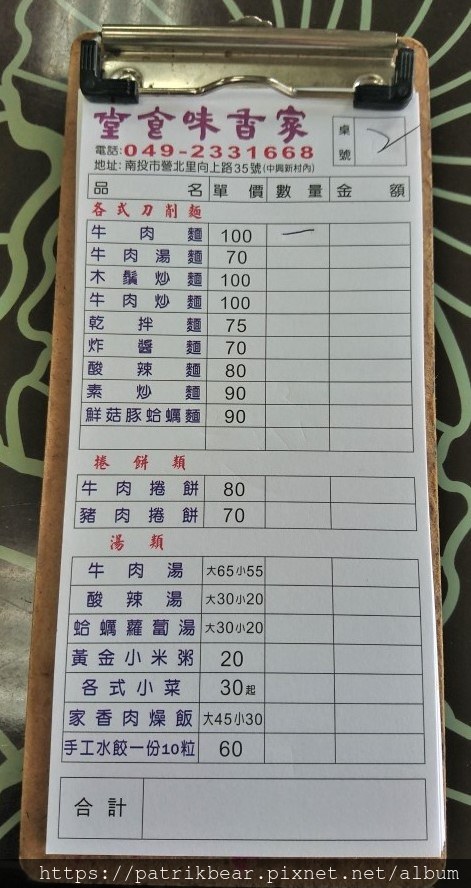 家香味食堂
電話:049-2331668
地址:南投市營北里向上路35號(中興新村內)
桌號 2
品名 單價 數量 金額
各式刀削麵
牛肉麵 100 一
牛肉湯麵 70
木鬚炒麵 100
牛肉炒麵 100
乾拌麵 75
炸醬麵 70
酸辣麵 80
素炒麵 90
鮮菇豚蛤蠣麵 90
捲餅類
牛肉捲餅 80
豬肉捲餅 70
湯類
牛肉湯 大65小55
酸辣湯 大30小20
蛤蠣蘿蔔湯 大30小20
黃金小米粥 20
各式小菜 30起
家香肉燥飯 大45小30
手工水餃一份10粒 60
合計
https://patrikbear.pixnet.net/album